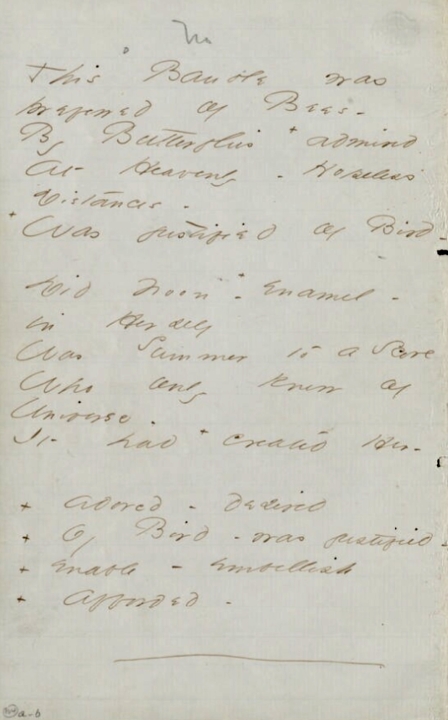 This Bauble was
prefered of Bees -
By Butterflies + admired
At Heavenly - Hopeless
Distances -
+ Was justified of Bird -
Did Noon + Enamel -
in Herself
Was Summer to a Score
Who only knew of
Universe -
It had + created Her -
+ adored - desired
+ Of Bird - was justified -
+ Enable - embellish
+ Afforded -
a-b